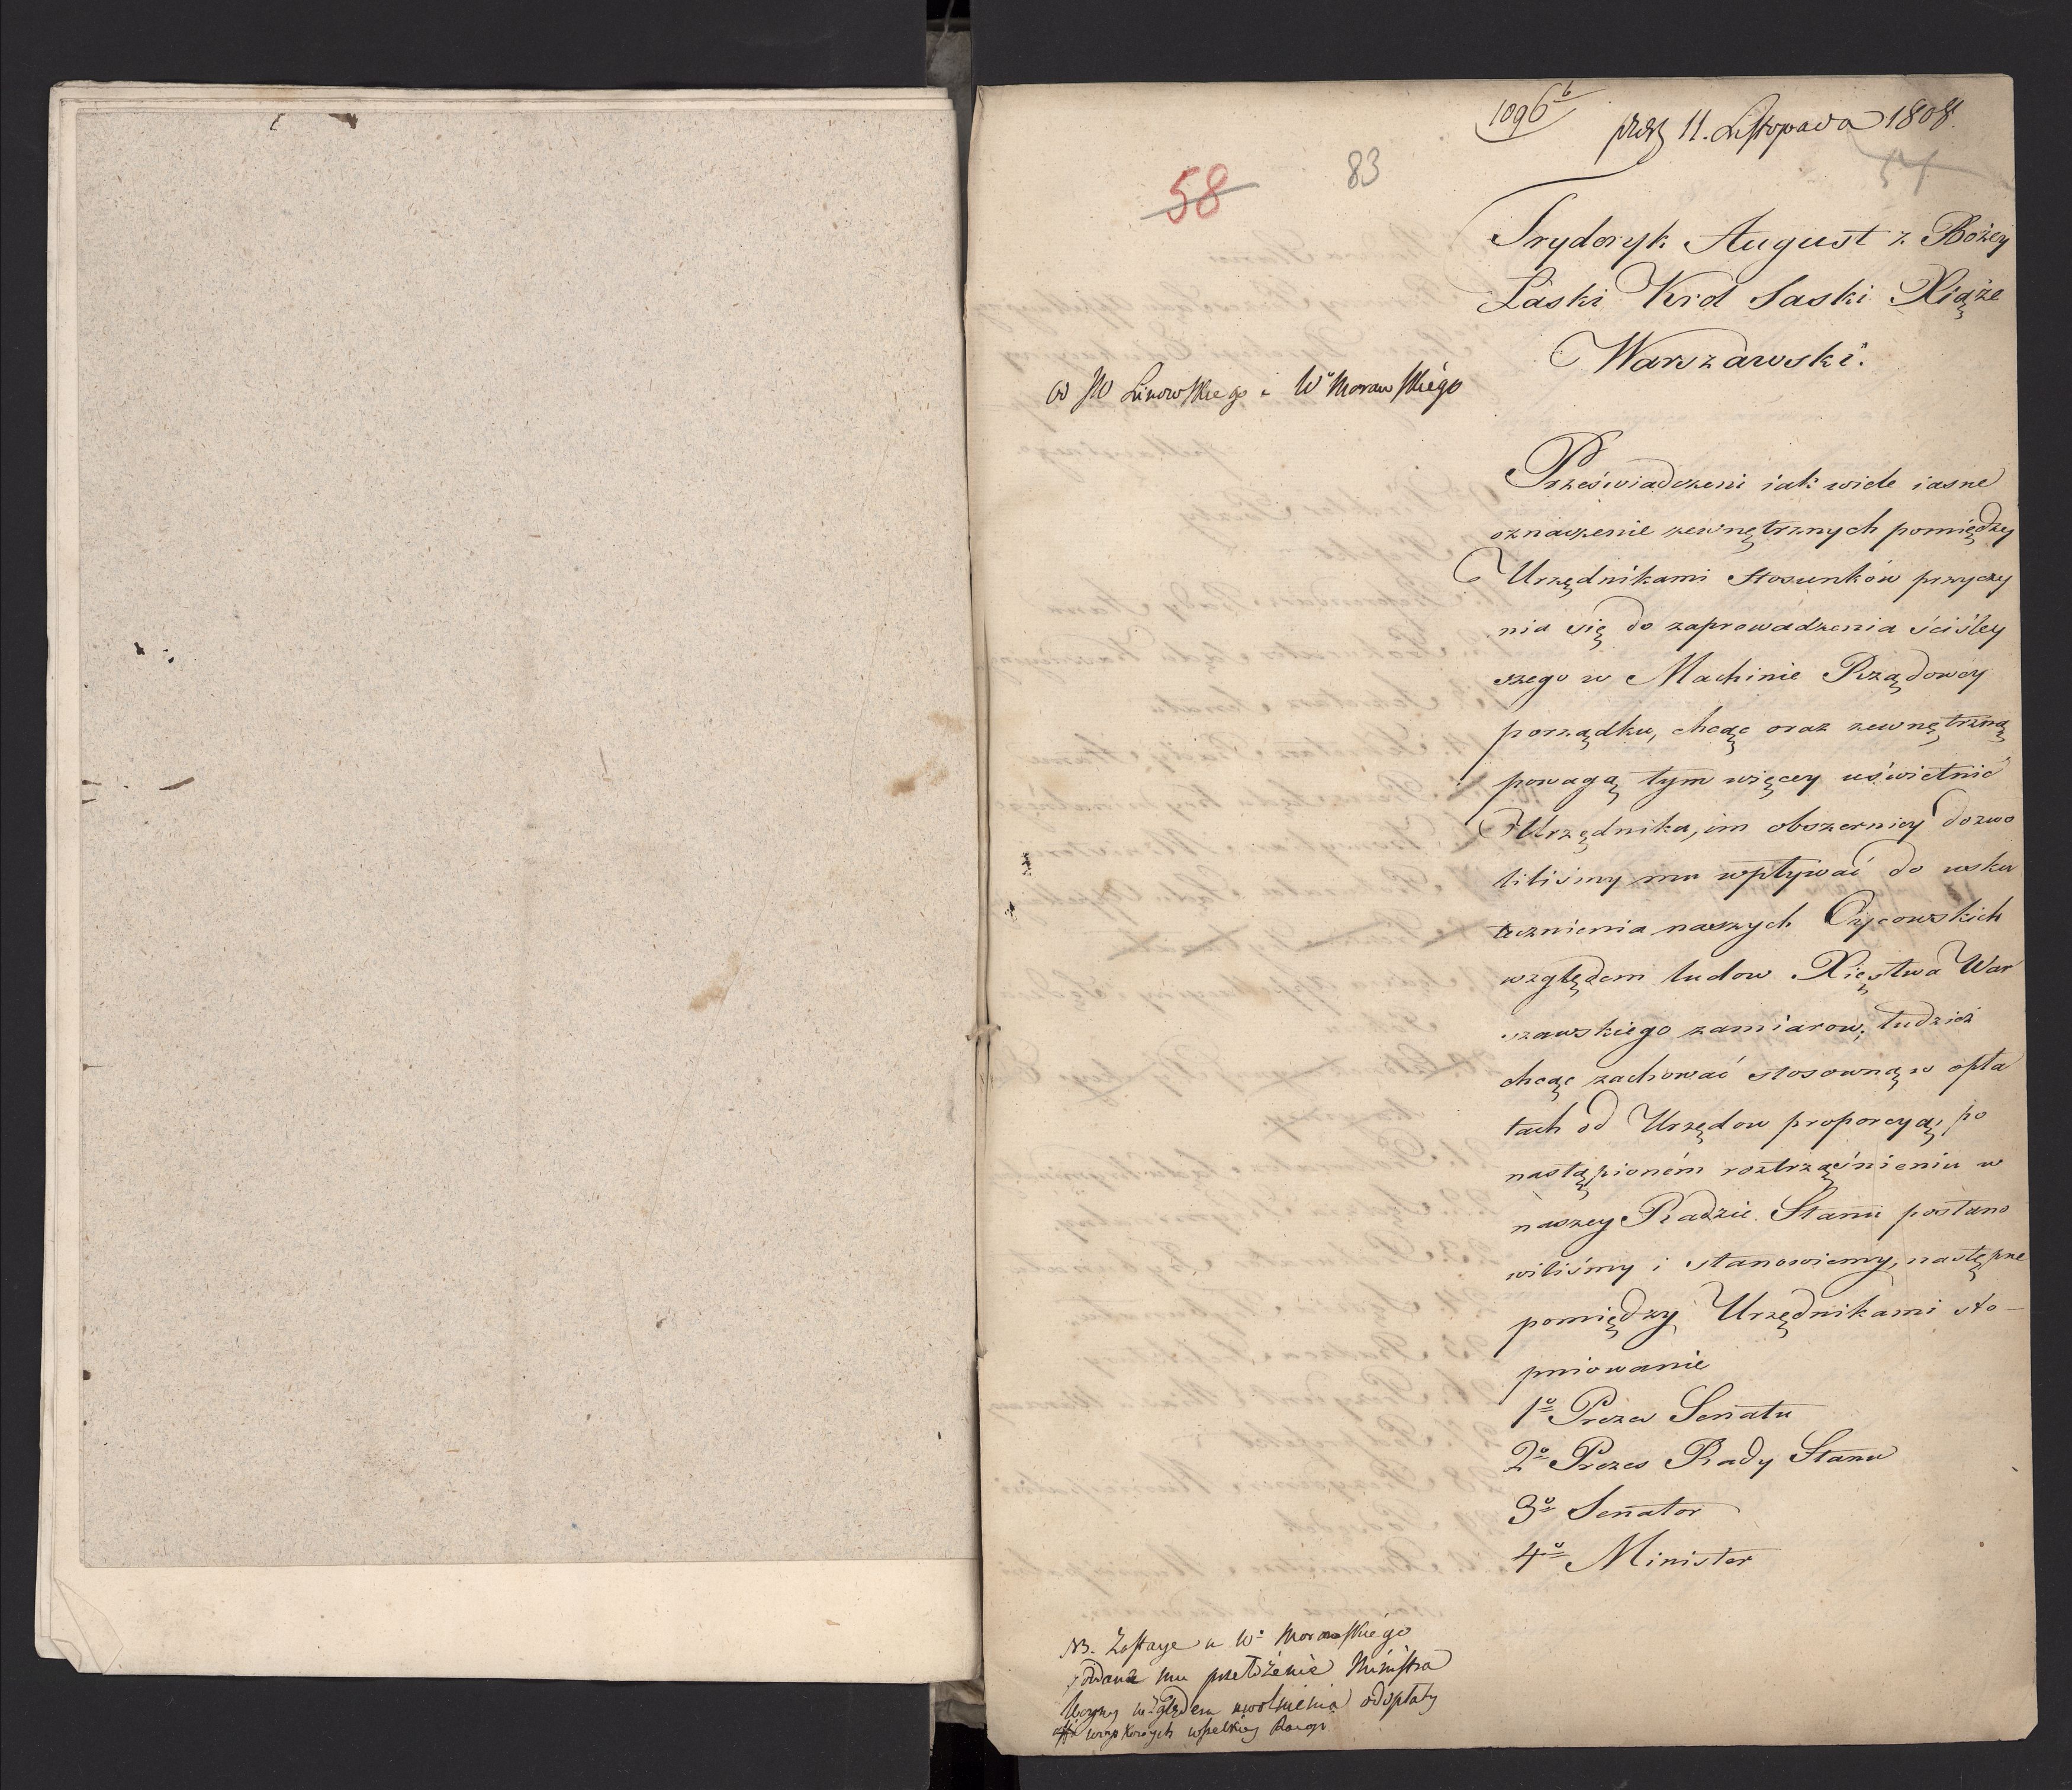 1096 b
11. Listopada 1808.
58
83
54
Fryderyk August z Bożey
Łaski Krol Saski Xiąże
Warszawski.
W Linowskiego i Wo Morawskiego
Przeświadczeni iak wiele iasne
oznaczenie zewnętrznych pomiędzy
Urzędnikami stosunków przyczy
nia się do zaprowadzenia ściśley
szego w Machinie Rządowéy
porządku, chcąc oraz zewnętrzną
powagą tym więcey uświetnić
Urzędnika, im obszerniey dozwo
liliśmy mu wpływać do usku
tecznienia naszych Oycowskich
względem ludow Xięstwa War
szawskiego zamiarow, tudzież
chcąc zachować stosowną w opła
tach od Urzędow proporcyą, po
nastąpioném roztrząśnieniu w
naszey Radzie Stanu postano
wiliśmy i stanowiemy, następne
pomiędzy Urzędnikami sto-
pniowanie
1o Prezes Senatu
2o Prezes Rady Stanu
3o Senator
4o Minister
NB. Zostaye u Wo Morawskiego
podane mu przełożenie Ministra
Woyny względem uwolnienia od opłaty
woyskowych wszelkiey Rangi